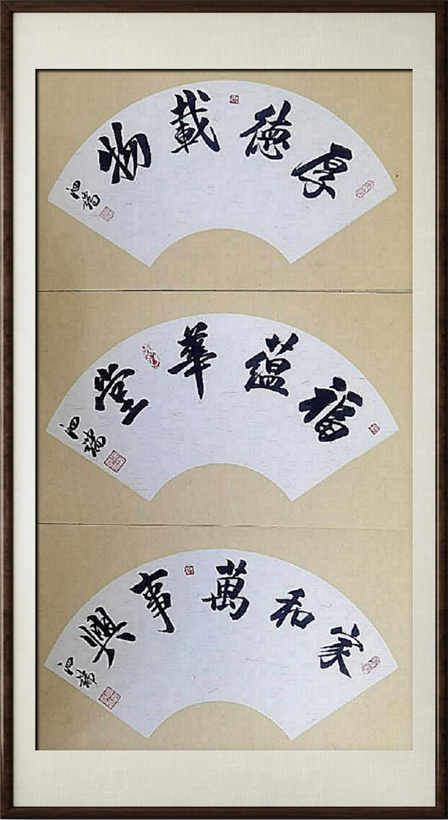 厚德載物
福蘊華堂
家和萬事興